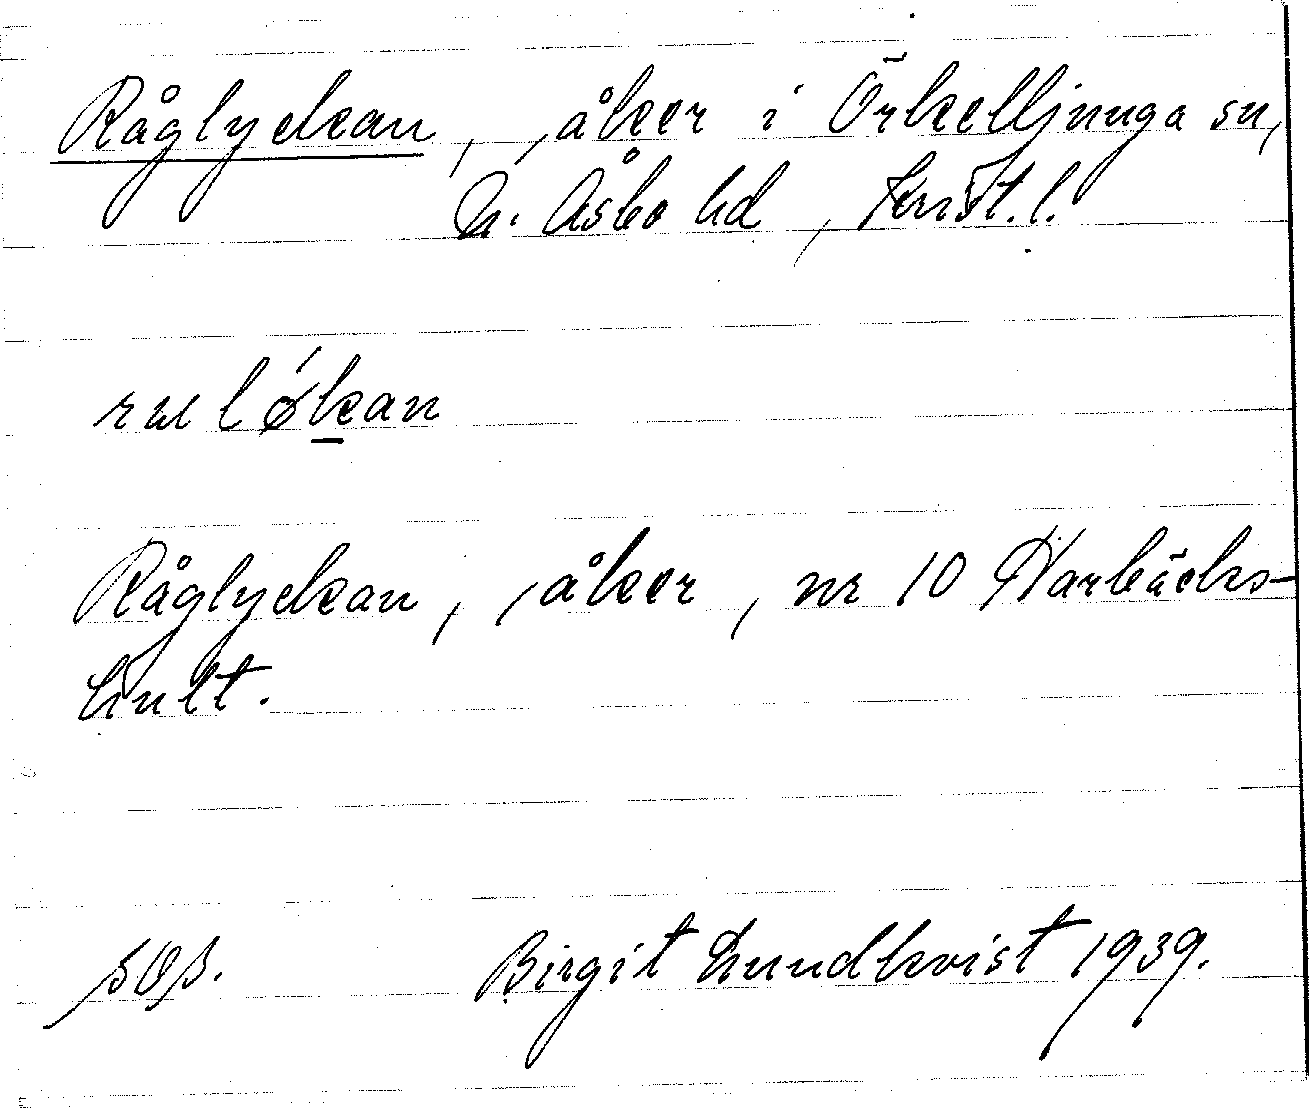 Råglyckan, åker i Örkelljunga sn,
N. Åsbo hd, Krist. l.
Råglyckan, åker, nr 10 Harbäcks-
hult.
Birgit Lundkvist 1939.